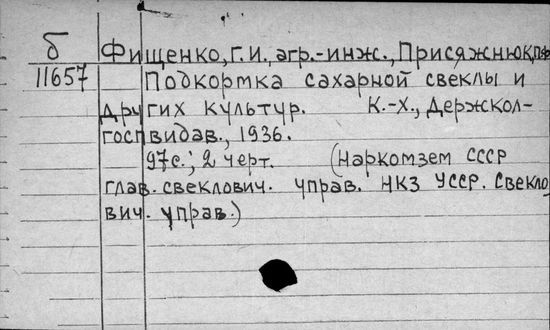 б Фищенко, Г. И., агр.-инж., Присяжнюк,
11657 Подкормка сахарной свеклы и
других культур. К.-Х., Держкол-
госпвидав., 1936.
97с.; 2 черт. (Наркомзем СССР
глав. свеклович. управ. НКЗ УССР. Свекло
вич. управ.)